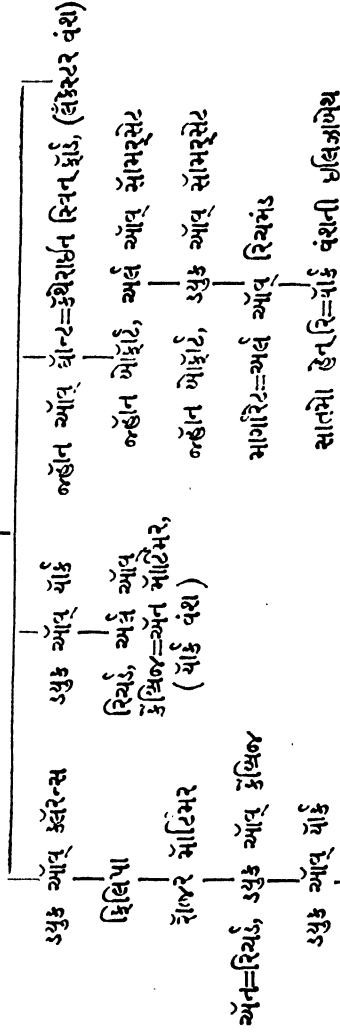 ડ્યુક ઑવ્ ક્લૅરન્સ
ફિલિપા
રૉજર મૉર્ટિમર
ઍન=રિચર્ડ, ડ્યુક ઑવ્ કૅમ્બ્રિજ
ડ્યુક ઑવ્ યૉર્ક
ડ્યુક ઑવ્ યૉર્ક
રિચર્ડ, અર્લ ઑવ્
કૅમ્બ્રિજ=ઍન મૉર્ટિમર,
(યૉર્ક વંશ)
જ્હૉન ઑવ્ ગૉન્ટ=કૅથેરાઇન સ્વિનફૉર્ડ, (લૅંકેસ્ટર વંશ)
જ્હૉન બોફોર્ટ, અર્લ ઑવ્ સૉમરસેટ
જ્હૉન બોફોર્ટ, ડ્યુક ઑવ્ સૉમરસેટ
માર્ગારેટ=અર્લ ઑવ્ રિચમંડ
સાતમો હેનરિ=યૉર્ક વંશની ઇલિઝાબેથ